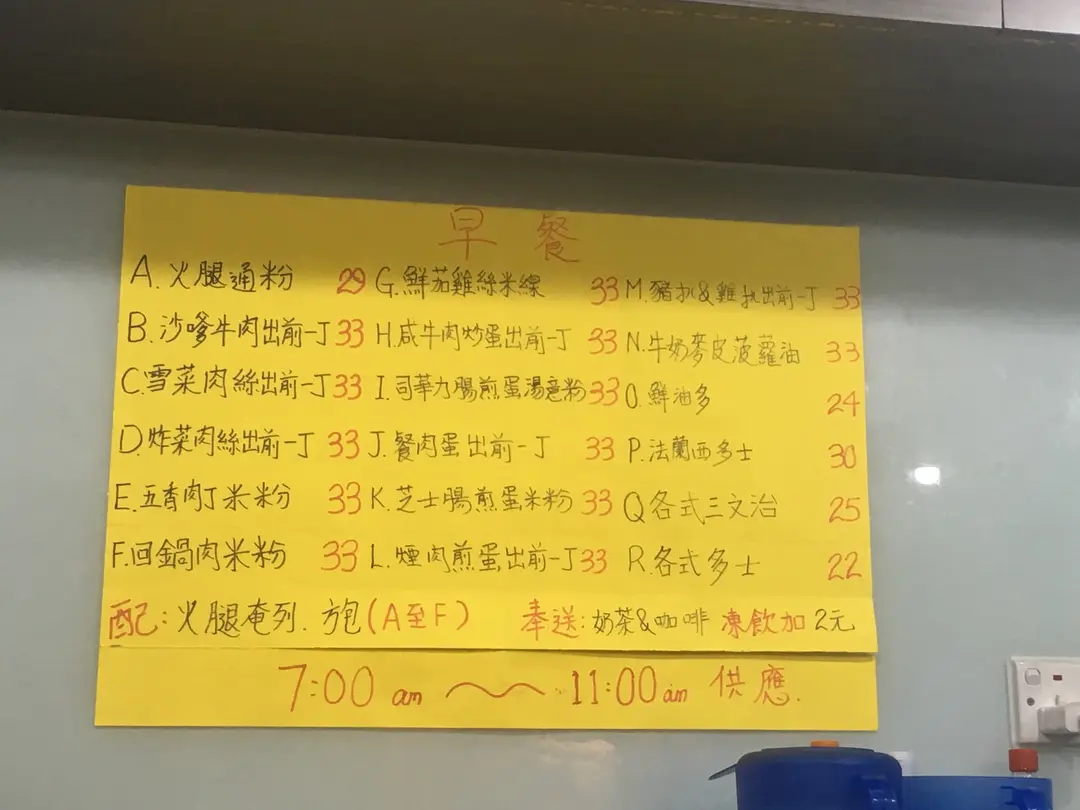 早餐
A.火腿通粉 29 G.鮮茄雞絲米線 33 M.豬扒&雞扒出前一丁 33
B.沙嗲牛肉出前一丁 33 H.咸牛肉炒蛋出前一丁 33 N.牛奶麥皮菠蘿油 33
C.雪菜肉絲出前一丁 33 I.司華力腸煎蛋湯意粉 33 O.鮮油多 24
D.炸菜肉絲出前一丁 33 J.餐肉蛋出前一丁 33 P.法蘭西多士 30
E.五香肉丁米粉 33 K.芝士腸煎蛋米粉 33 Q各式三文治 25
F.回鍋肉米粉 33 L.煙肉煎蛋出前一丁 33 R.各式多士 22
配:火腿奄列.方包(A至F) 奉送:奶茶&咖啡 凍飲加2元
7:00am ~~ 11:00am 供應.